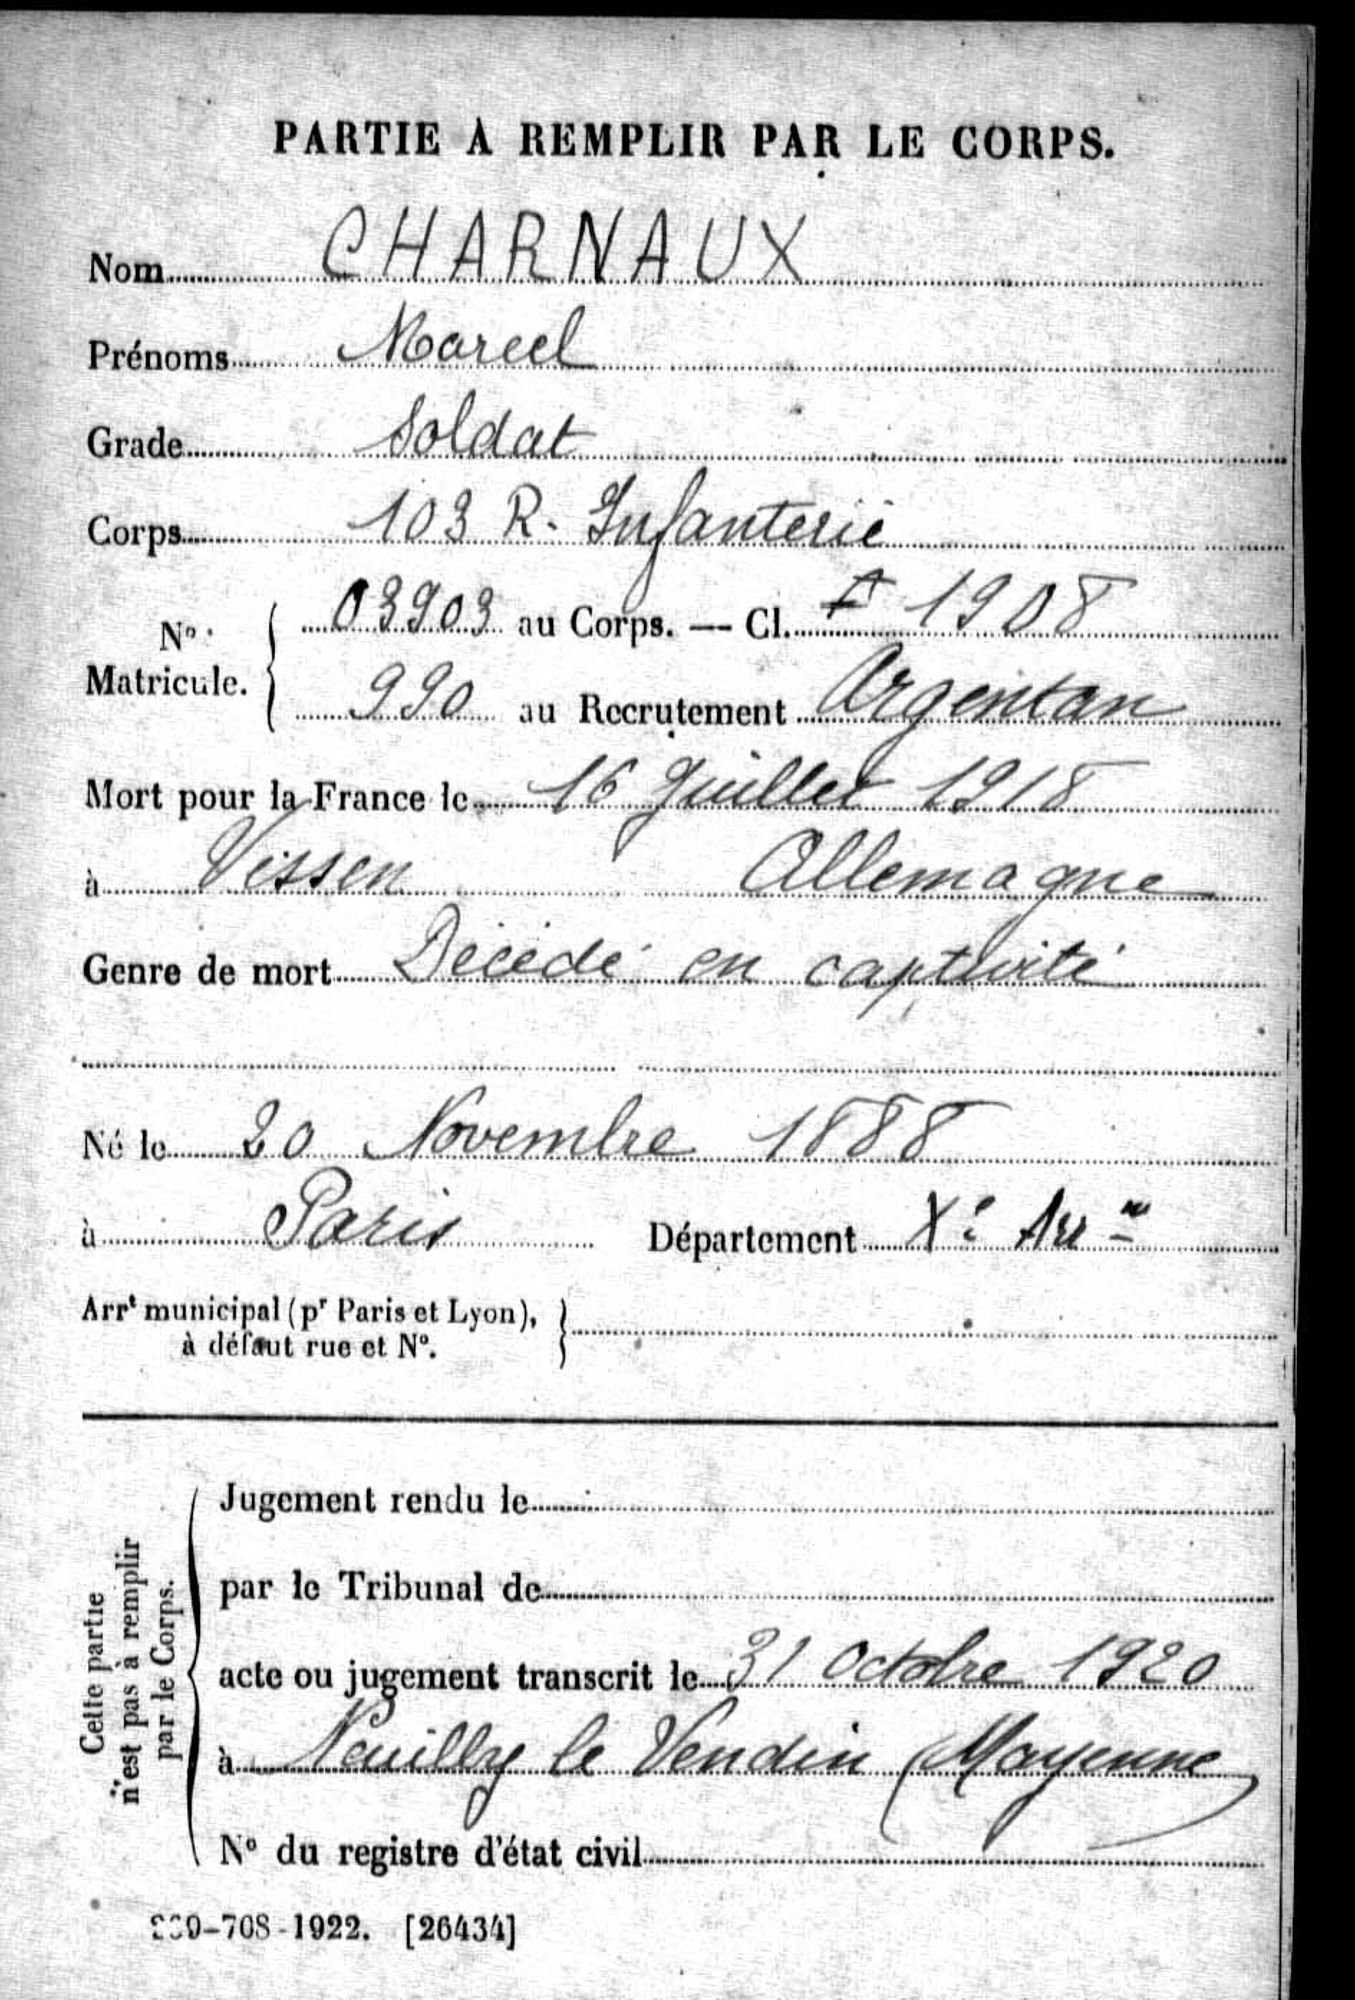 PARTIE À REMPLIR PAR LE CORPS.
Nom CHARNAUX
Prénoms Marcel
Grade Soldat
Corps 103 R. Infanterie
Nº Matricule. 03903 au Corps. — Cl. 1908
990 au Recrutement Argentan
Mort pour la France le 16 Juillet 1918
à Vissen Allemagne
Genre de mort Décédé en captivité
Né le 20 Novembre 1888
à Paris Département Xe Arr
Arrt municipal (pr Paris et Lyon),
à défaut rue et Nº.
Cette partie
n'est pas à remplir
par le Corps.
Jugement rendu le
par le Tribunal de
acte ou jugement transcrit le 31 Octobre 1920
à Neuilly le Vendin (Mayenne)
Nº du registre d'état civil
-708-1922. [26434]